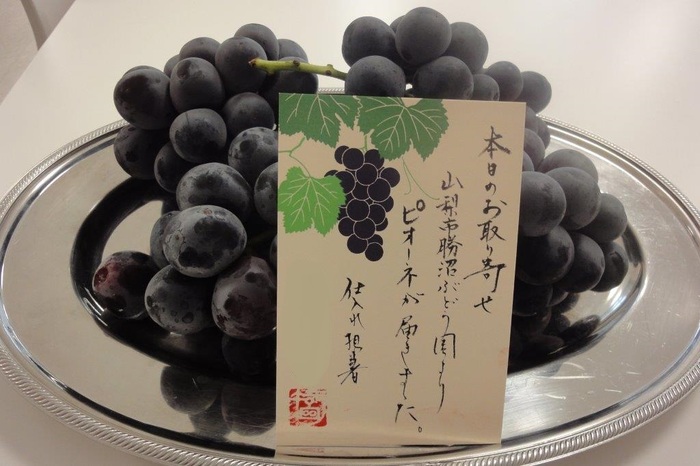 本日のお取り寄せ
山梨市勝沼ぶどう園より
ピオーネが届きました。
仕入れ担当者